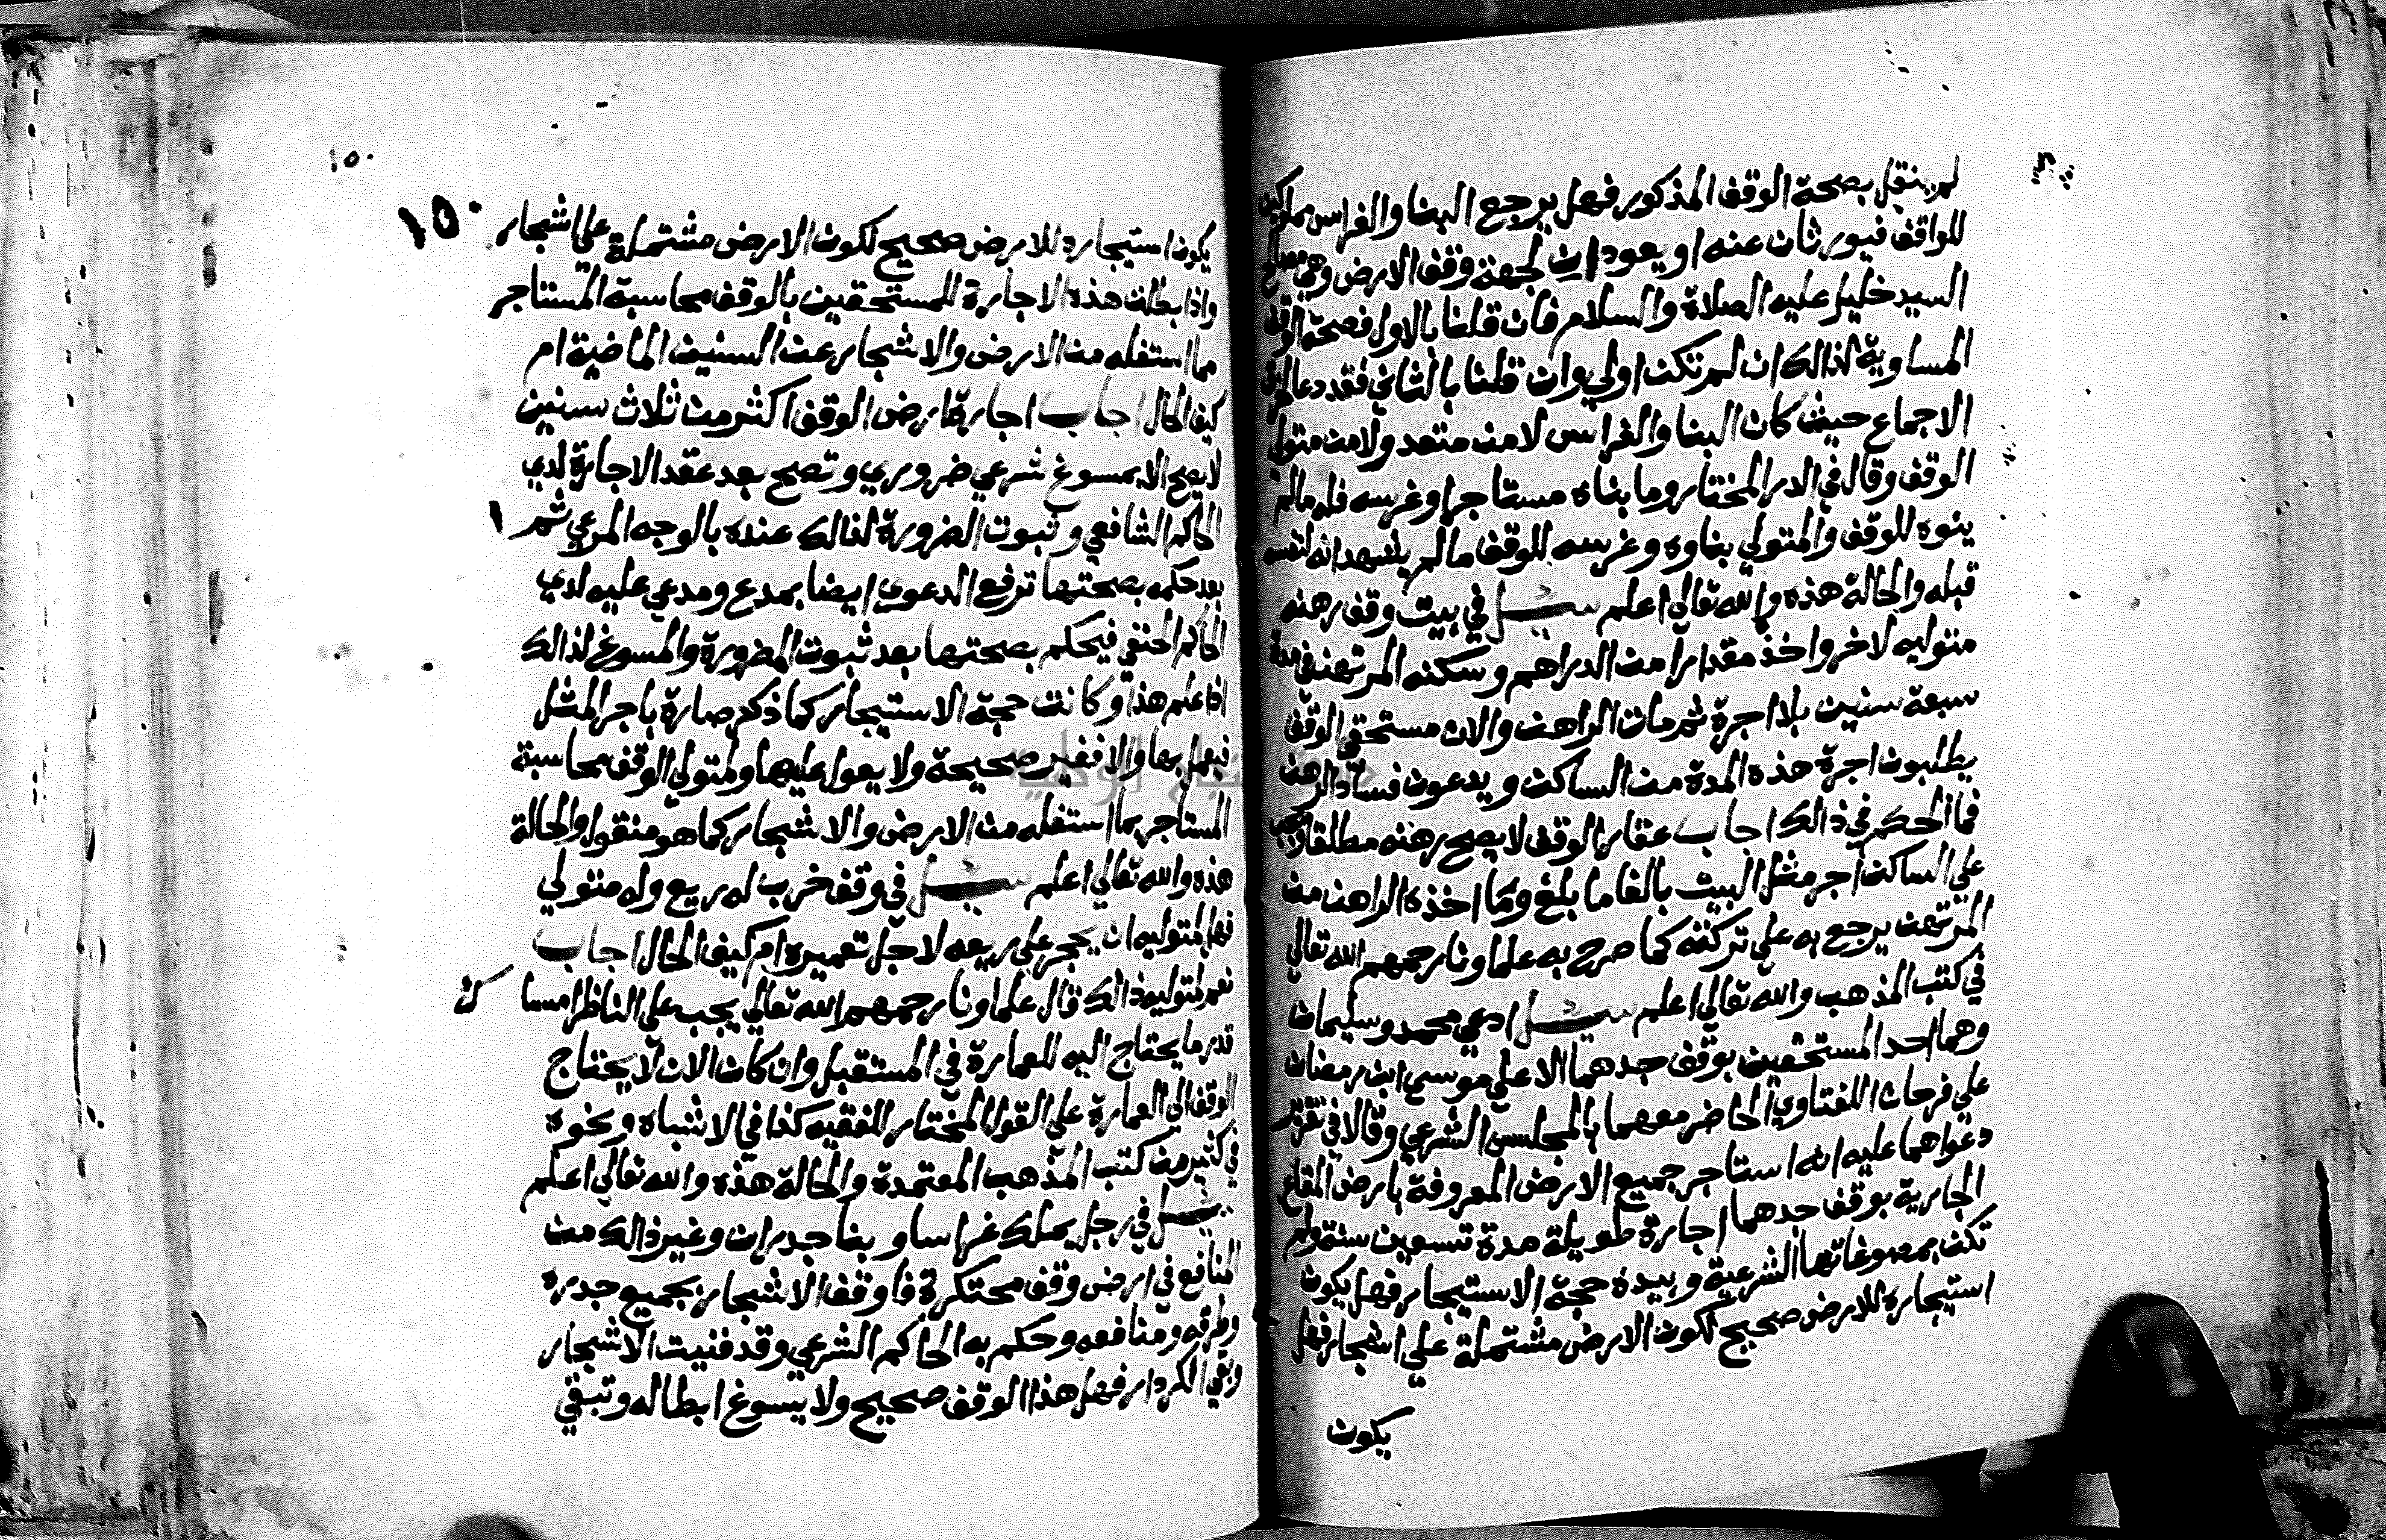 لم ينقل بصحة الوقف المذكور فهل يرجع البنا والغراس مملوكين
للواقف فيورثان عنه او يعودان لجهة وقف الارض وهي مصالح
السيد خليل عليه الصلاة والسلام فان قلنا بالاول فصحة الوقف
المساوية لذالك ان لم تكن اولي وان قلنا بالثاني فقد دعا
الاجماع حيث كان البنا والغراس لا من متعد ولا من متولي
الوقف وقال في الدر المختار وما بناه مستاجر او غرسه فله مالم
ينوه للوقف والمتولي بناوه وغرسه للوقف مالم يشهد انه لنفسه
قبله والحالة هذه والله تعالي اعلم سئل في بيت وقف رهنه
متوليه لاخر واخذ مقدارا من الدراهم وسكنه المرتهن مدة
سبعة سنين بلا اجرة ثم مات الراهن والان مستحقي الوقف
يطلبون اجرة هذه المدة من الساكن ويدعون فساد الرهن
فما الحكم في ذالك اجاب عقار الوقف لا يصح رهنه مطلقا ويجب
علي الساكن اجر مثل البيت بالغا ما بلغ وما اخذه الراهن من
المرتهن يرجع به علي تركته كما صرح به علماونا رحمهم الله تعالي
في كتب المذهب والله تعالي اعلم سئل ادعي محمد وسليمان
وهما احد المستحقين بوقف جدهما الاعلي موسي ابن رمضان
علي فرحات اللفتاوي الحاضر معهما بالمجلس الشرعي وقالا في تقرير
دعواهما عليه انه استاجر جميع الارض المعروفة بارض
الجارية بوقف جدهما اجارة طويلة مدة تسعين سنة ولم
تكن بمسوغاتها الشرعية وبيده حجة الاستيجار فهل يكون
استيجاره للارض صحيح لكون الارض مشتملة علي اشجار فهل
يكون
١٥٠
١٥٠
يكون استيجاره للارض صحيح لكون الارض مشتملة علي اشجار
واذا بطلت هذه الاجارة للمستحقين بالوقف محاسبة المستاجر
مما استغله من الارض والاشجار عن السنين الماضية ام
كيف الحال اجاب اجارة ارض الوقف اكثر من ثلاث سنين
لا يصح الا بمسوغ شرعي ضروري وتصح بعد عقد الاجارة لدي
الحاكم الشافعي وثبوت الضرورة لذالك عنده بالوجه المرعي ثم
بعد حكمه بصحتها ترفع الدعوي ايضا بمدع ومدعي عليه لدي
الحاكم الحنفي فيحكم بصحتها بعد ثبوت الضرورة والمسوغ لذالك
اذا علم هذا وكانت حجة الاستيجار كما ذكر صارة باجر المثل
فيعمل بها والا فغير صحيحة ولا يعول عليها ولمتولي الوقف محاسبة
المستاجر بما استغله من الارض والاشجار كما هو منقول والحالة
هذه والله تعالي اعلم سئل في وقف خرب له ريع وله متولي
فهل لمتوليه ان يحجر علي ريعه لاجل تعميره ام كيف الحال اجاب
نعم لمتوليه ذالك قال علماونا رحمهم الله تعالي يجب علي الناظر امساك
قدر ما يحتاج اليه للعمارة في المستقبل وان كان الان لا يحتاج
الوقف الي العمارة علي القول المختار للفقيه كذا في الاشباه ونحوه
في كثير من كتب المذهب المعتمدة والحالة هذه والله تعالي اعلم
سئل في رجل يملك غراسا وبنا جدران وغير ذالك من
المنافع في ارض وقف محتكرة فاوقف الاشجار بجميع جدره
وطرقه ومنافعه وحكم به الحاكم الشرعي وقد فنيت الاشجار
وبقي الكردار فهل هذا الوقف صحيح ولا يسوغ ابطاله وتبقي